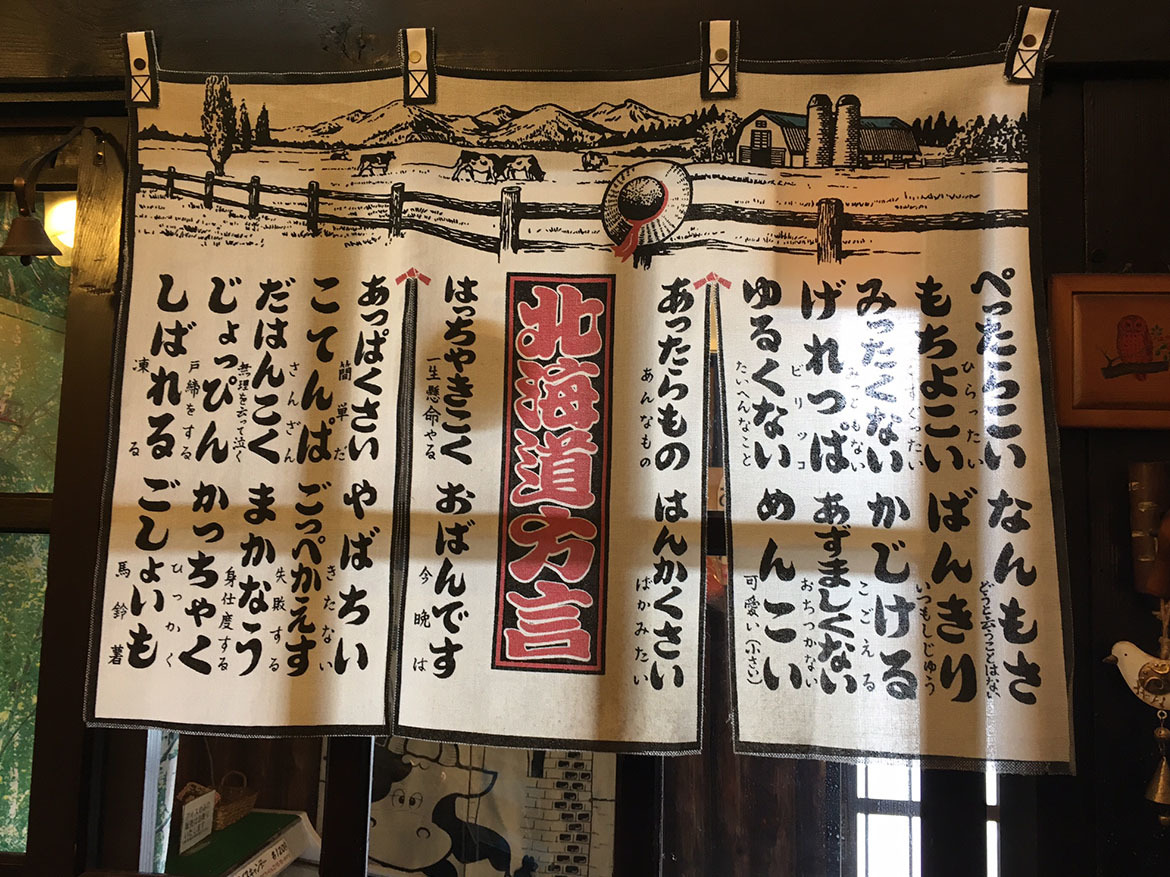 ぺったらこい
ひらったい
なんもさ
どうと云うことはない
もちょこい
くすぐったい
ばんきり
いつもしじゅう
みったくない
みっともない
かじける
こごえる
げれっぱ
ビリッコ
あずましくない
おちつかない
ゆるくない
たいへんなこと
めんこい
可愛い(小さい)
あったらもの
あんなもの
はんかくさい
ばかみたい
北海道方言
はっちゃきこく
一生懸命やる
おばんです
今晩は
あっぱくさい
簡単だ
やばちい
きたない
こてんぱ
さんざん
ごっぺかえす
失敗する
だはんこく
無理を云って泣く
まかなう
身仕度する
じょっぴん
戸締をする
かっちゃく
ひっかく
しばれる
凍る
ごしょいも
馬鈴薯